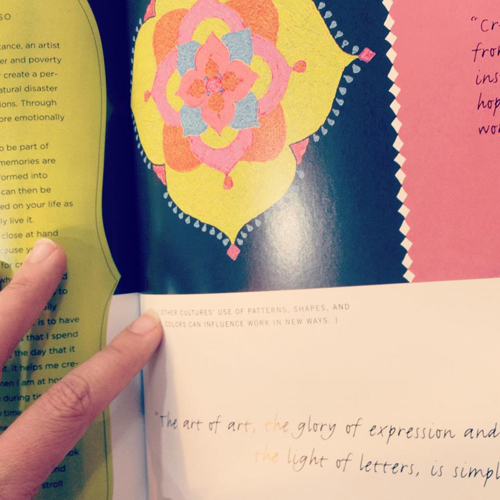 SO
ance, an artist
er and poverty
create a per-
atural disaster
ions. Through
ore emotionally
o be part of
memories are
formed into
can then be
ed on your life as
ly live it.
close at hand
for
to
is to have
that I spend
the day that it
it helps me cre-
I am at
during
time
and
stroll
"Cr
from
ins
hop
wor
OTHER CULTURES' USE OF PATTERNS, SHAPES, AND
COLORS CAN INFLUENCE WORK IN NEW WAYS. ]
"The art of art, the glory of expression and
the light of letters, is simpl